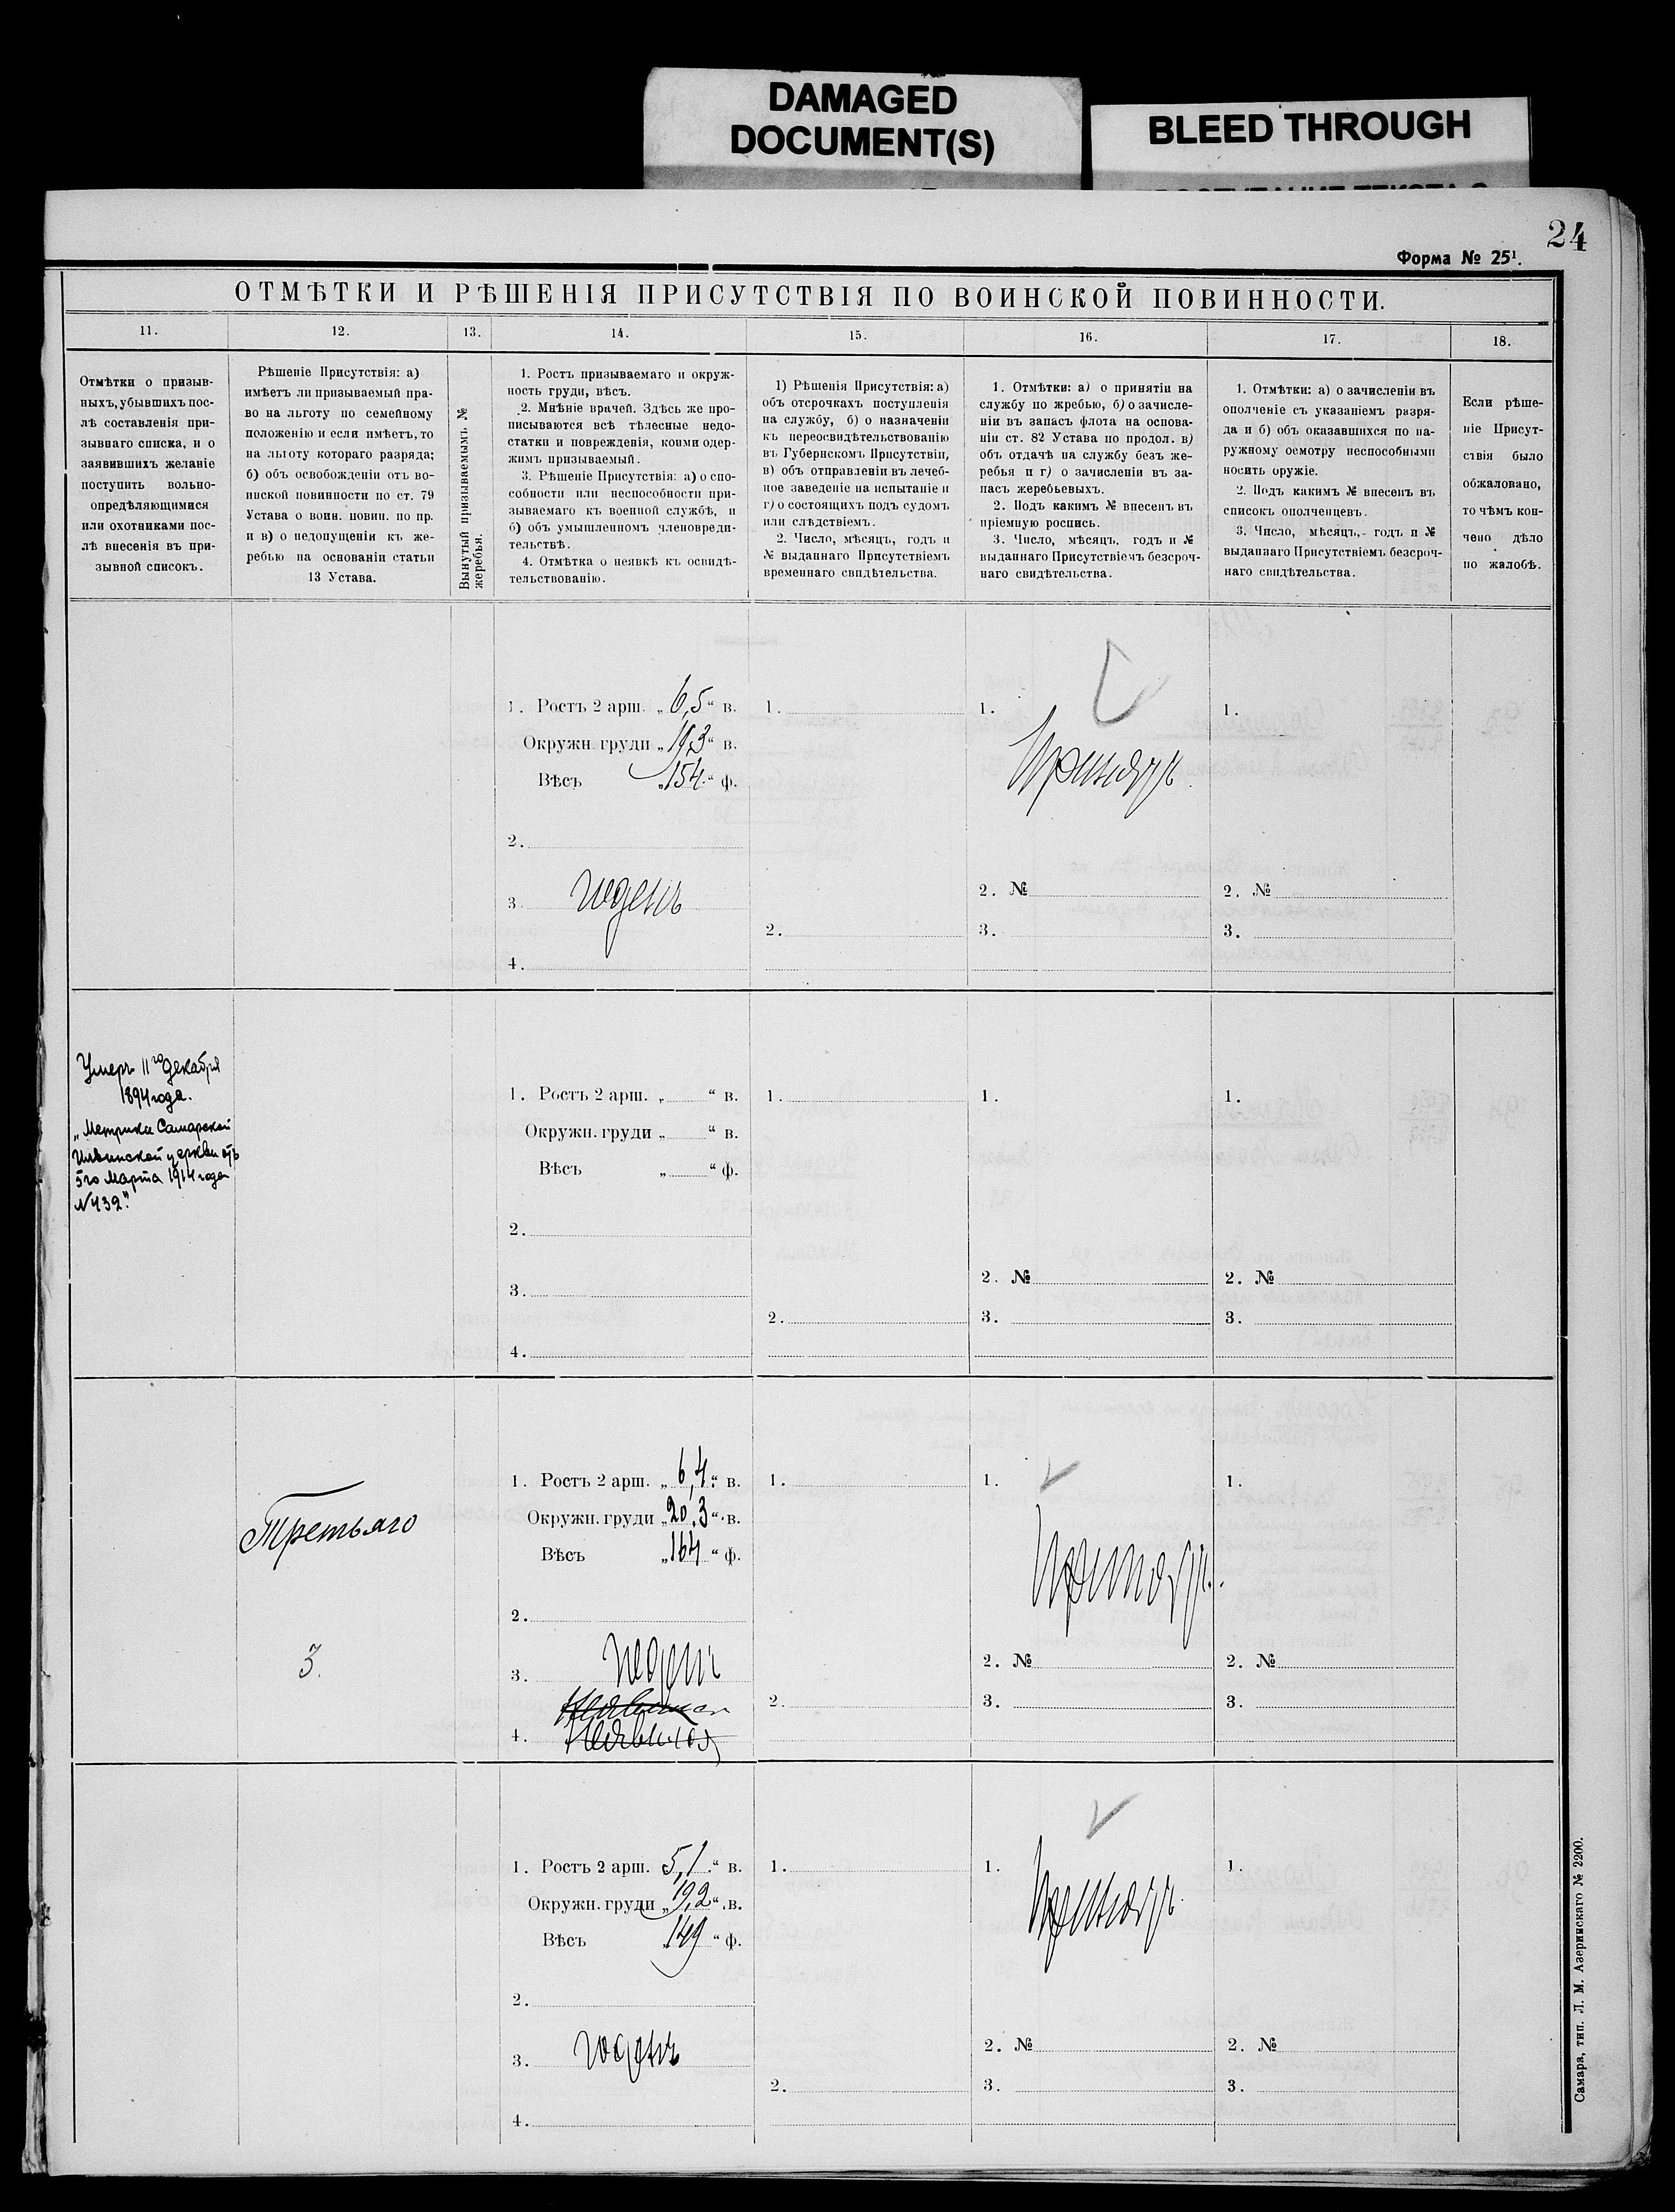 DAMAGED
DOCUMENT(S)
BLEED THROUGH
24
Форма № 25¹.
ОТМѢТКИ И РѢШЕНІЯ ПРИСУТСТВІЯ ПО ВОИНСКОЙ ПОВИННОСТИ.
11.
12.
13.
14.
15.
16.
17.
18.
Отмѣтки о призыв-
ныхъ, убывшихъ пос-
лѣ составленія при-
зывнаго списка, и о
заявившихъ желаніе
поступить вольно-
опредѣляющимися
или охотниками пос-
лѣ внесенія въ при-
зывной списокъ.
Рѣшеніе Присутствія: а)
имѣетъ ли призываемый пра-
во на льготу по семейному
положенію и если имѣетъ, то
на льготу котораго разряда;
б) объ освобожденіи отъ во-
инской повинности по ст. 79
Устава о воин. повин. по пр.
и в) о недопущеніи къ же-
ребью на основаніи статьи
13 Устава.
Вынутый призываемымъ №
жеребья.
1. Ростъ призываемаго и окруж-
ность груди, вѣсъ.
2. Мнѣніе врачей. Здѣсь же про-
писываются всѣ тѣлесные недо-
статки и поврежденія, коими одер-
жимъ призываемый.
3. Рѣшеніе Присутствія: а) о спо-
собности или неспособности при-
зываемаго къ военной службѣ, и
б) объ умышленномъ членовреди-
тельствѣ.
4. Отмѣтка о неявкѣ къ освидѣ-
тельствованію.
1) Рѣшенія Присутствія: а)
объ отсрочкахъ поступленія
на службу, б) о назначеніи
къ переосвидѣтельствованію
въ Губернскомъ Присутствіи,
в) объ отправленіи въ лечеб-
ное заведеніе на испытаніе и
г) о состоящихъ подъ судомъ
или слѣдствіемъ.
2. Число, мѣсяцъ, годъ и
№ выданнаго Присутствіемъ
временнаго свидѣтельства.
1. Отмѣтки: а) о принятіи на
службу по жребью, б) о зачисле-
ніи въ запасъ флота на основа-
ніи ст. 82 Устава по продол. в)
объ отдачѣ на службу безъ же-
ребья и г) о зачисленіи въ за-
пасъ жеребьевыхъ.
2. Подъ какимъ № внесенъ въ
пріемную роспись.
3. Число, мѣсяцъ, годъ и №
выданнаго Присутствіемъ безсроч-
наго свидѣтельства.
1. Отмѣтки: а) о зачисленіи въ
ополченіе съ указаніемъ разря-
да и б) объ оказавшихся по на-
ружному осмотру неспособными
носить оружіе.
2. Подъ какимъ № внесенъ въ
списокъ ополченцевъ.
3. Число, мѣсяцъ, годъ и №
выданнаго Присутствіемъ безсроч-
наго свидѣтельства.
Если рѣше-
ніе Присут-
ствія было
обжаловано,
то чѣмъ кон-
чено дѣло
по жалобѣ.
1. Ростъ 2 арш. „ 6,5 “ в.
Окружн. груди „ 19,3 “ в.
Вѣсъ „ 154 “ ф.
2.
3. годенъ
4.
1.
2.
1.
Принятъ
2. №
3.
1.
2. №
3.
Умеръ 11го декабря
1894 года.
„Метрика Самарской
Ильинской церкви отъ
5го Марта 1914 года
№ 432“.
1. Ростъ 2 арш. „ “ в.
Окружн. груди „ “ в.
Вѣсъ „ “ ф.
2.
3.
4.
1.
2.
1.
2. №
3.
1.
2. №
3.
Третьяго
3.
1. Ростъ 2 арш. „ 6,4 “ в.
Окружн. груди „ 20.3 “ в.
Вѣсъ „ 164 “ ф.
2.
3. годенъ
Неявился
4. Неявился
1.
2.
1.
Принятъ.
2. №
3.
1.
2. №
3.
1. Ростъ 2 арш. 5,1 “ в.
Окружн. груди „ 19,2 “ в.
Вѣсъ „ 149 “ ф.
2.
3. годенъ
4.
1.
2.
1.
Принятъ.
2. №
3.
1.
2. №
3.
Самара, тип. Л. М. Азеринскаго № 2200.